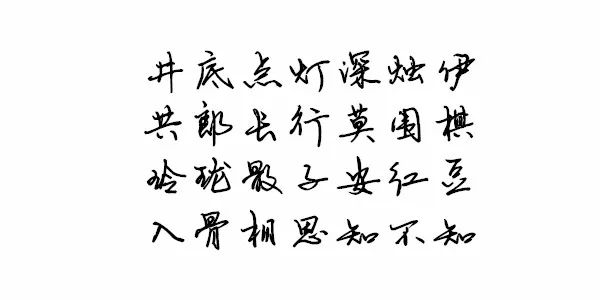 井底点灯深烛伊
共郎长行莫围棋
玲珑骰子安红豆
入骨相思知不知